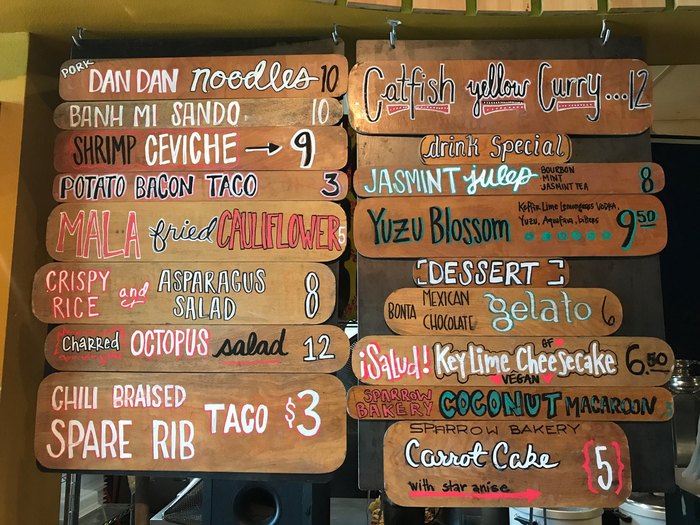 PORK
DAN DAN noodles 10
BANH MI SANDO 10
SHRIMP CEVICHE → 9
POTATO BACON TACO 3
MALA fried CAULIFLOWER 5
CRISPY RICE and ASPARAGUS SALAD 8
Charred OCTOPUS salad 12
CHILI BRAISED
SPARE RIB TACO $3
Catfish yellow Curry...12
drink Special
JASMINT julep BOURBON MINT JASMINT TEA 8
YUZU BLOSSOM Kaffir Lime Lemongrass Vodka, Yuzu, Aquafava, bitters 9.50
[DESSERT]
BONTA MEXICAN CHOCOLATE gelato 6
¡Salud! Key Lime Cheesecake GF VEGAN 6.50
SPARROW BAKERY COCONUT MACAROON
SPARROW BAKERY
Carrot Cake {5}
with star anise →